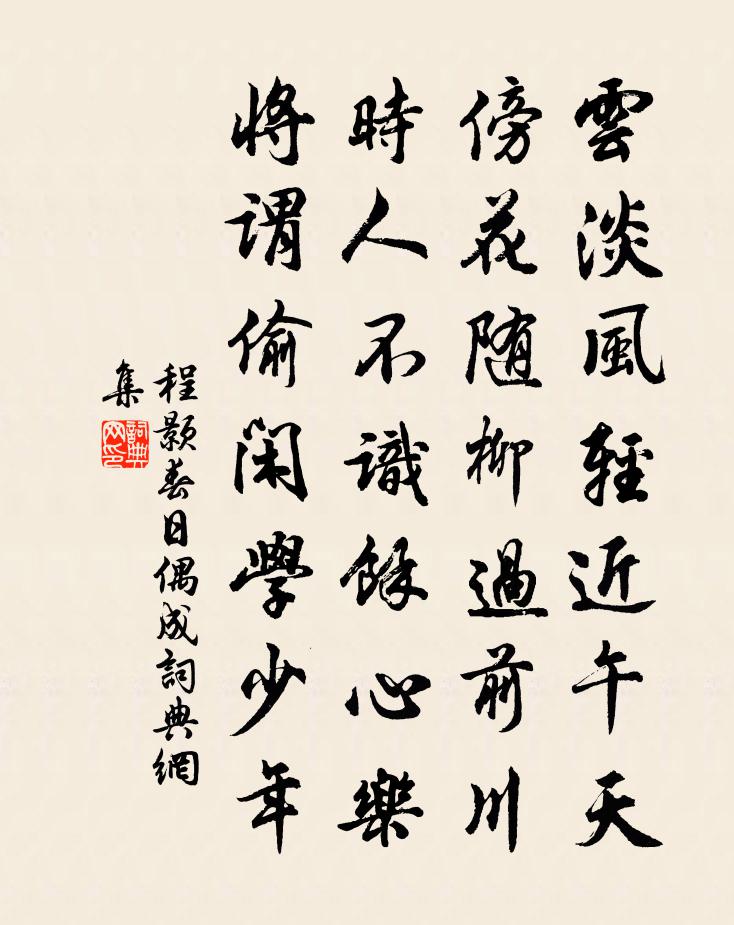 雲淡風輕近午天
傍花随柳過前川
時人不識餘心樂
将謂偷閑學少年
程顥春日偶成詞典網
集
詞典
网印